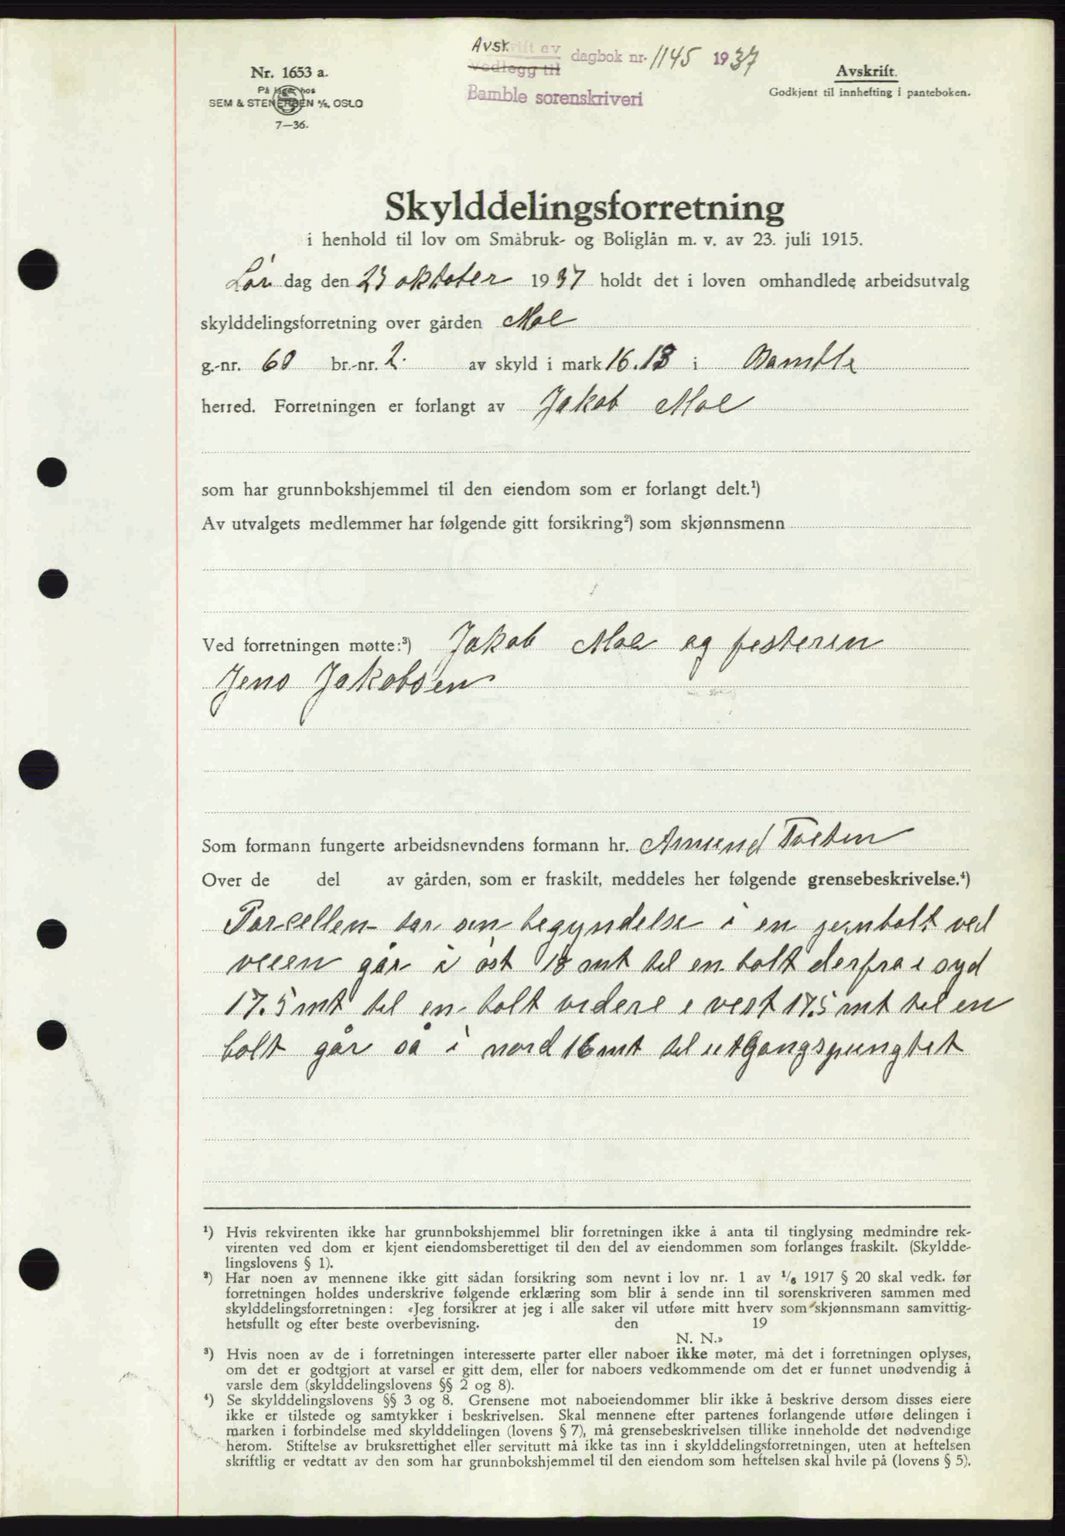 Avskrift av
Vedlegg til
dagbok nr. 1145 1937
Bamble sorenskriveri
Nr. 1653 a.
På lager hos
SEM & STENERSEN A/S, OSLO
7—36.
Avskrift.
Godkjent til innhefting i panteboken.
Skylddelingsforretning
i henhold til lov om Småbruk- og Boliglån m. v. av 23. juli 1915.
Lør dag den 23 oktober 1937 holdt det i loven omhandlede arbeidsutvalg
skylddelingsforretning over gården Moe
g.-nr. 60 br.-nr. 2. av skyld i mark 16.13 i Bamble
herred. Forretningen er forlangt av Jakob Moe
som har grunnbokshjemmel til den eiendom som er forlangt delt.¹)
Av utvalgets medlemmer har følgende gitt forsikring²) som skjønnsmenn
Ved forretningen møtte:³) Jakob Moe og festeren
Jens Jakobsen
Som formann fungerte arbeidsnevndens formann hr. Amund Tveten
Over de del av gården, som er fraskilt, meddeles her følgende grensebeskrivelse.⁴)
Parcellen tar sin begyndelse i en jernbolt ved
veien går i øst 18 mt til en bolt derfra i syd
17.5 mt til en bolt videre i vest 17.5 mt til en
bolt går så i nord 16 mt til utgangspungtet
¹) Hvis rekvirenten ikke har grunnbokshjemmel blir forretningen ikke å anta til tinglysing medmindre rek-
virenten ved dom er kjent eiendomsberettiget til den del av eiendommen som forlanges fraskilt. (Skyldde-
lingslovens § 1).
²) Har noen av mennene ikke gitt sådan forsikring som nevnt i lov nr. 1 av 1/6 1917 § 20 skal vedk. før
forretningen holdes underskrive følgende erklæring som blir å sende inn til sorenskriveren sammen med
skylddelingsforretningen: «Jeg forsikrer at jeg i alle saker vil utføre mitt hverv som skjønnsmann samvittig-
hetsfullt og efter beste overbevisning. den 19
N. N.»
³) Hvis noen av de i forretningen interesserte parter eller naboer ikke møter, må det i forretningen oplyses,
om det er godtgjort at varsel er gitt dem, eller for naboers vedkommende om det er funnet unødvendig å
varsle dem (skylddelingslovens §§ 2 og 8).
⁴) Se skylddelingslovens §§ 3 og 8. Grensene mot naboeiendommer blir ikke å beskrive dersom disses eiere
ikke er tilstede og samtykker i beskrivelsen. Skal mennene efter partenes forlangende utføre delingen i
marken i forbindelse med skylddelingen (lovens § 7), må grensebeskrivelsen tillike inneholde det nødvendige
herom. Stiftelse av bruksrettighet eller servitutt må ikke tas inn i skylddelingsforretningen, uten at heftelsen
skriftlig er vedtatt av den som har grunnbokshjemmel til den eiendom som heftelsen skal hvile på (lovens § 5).